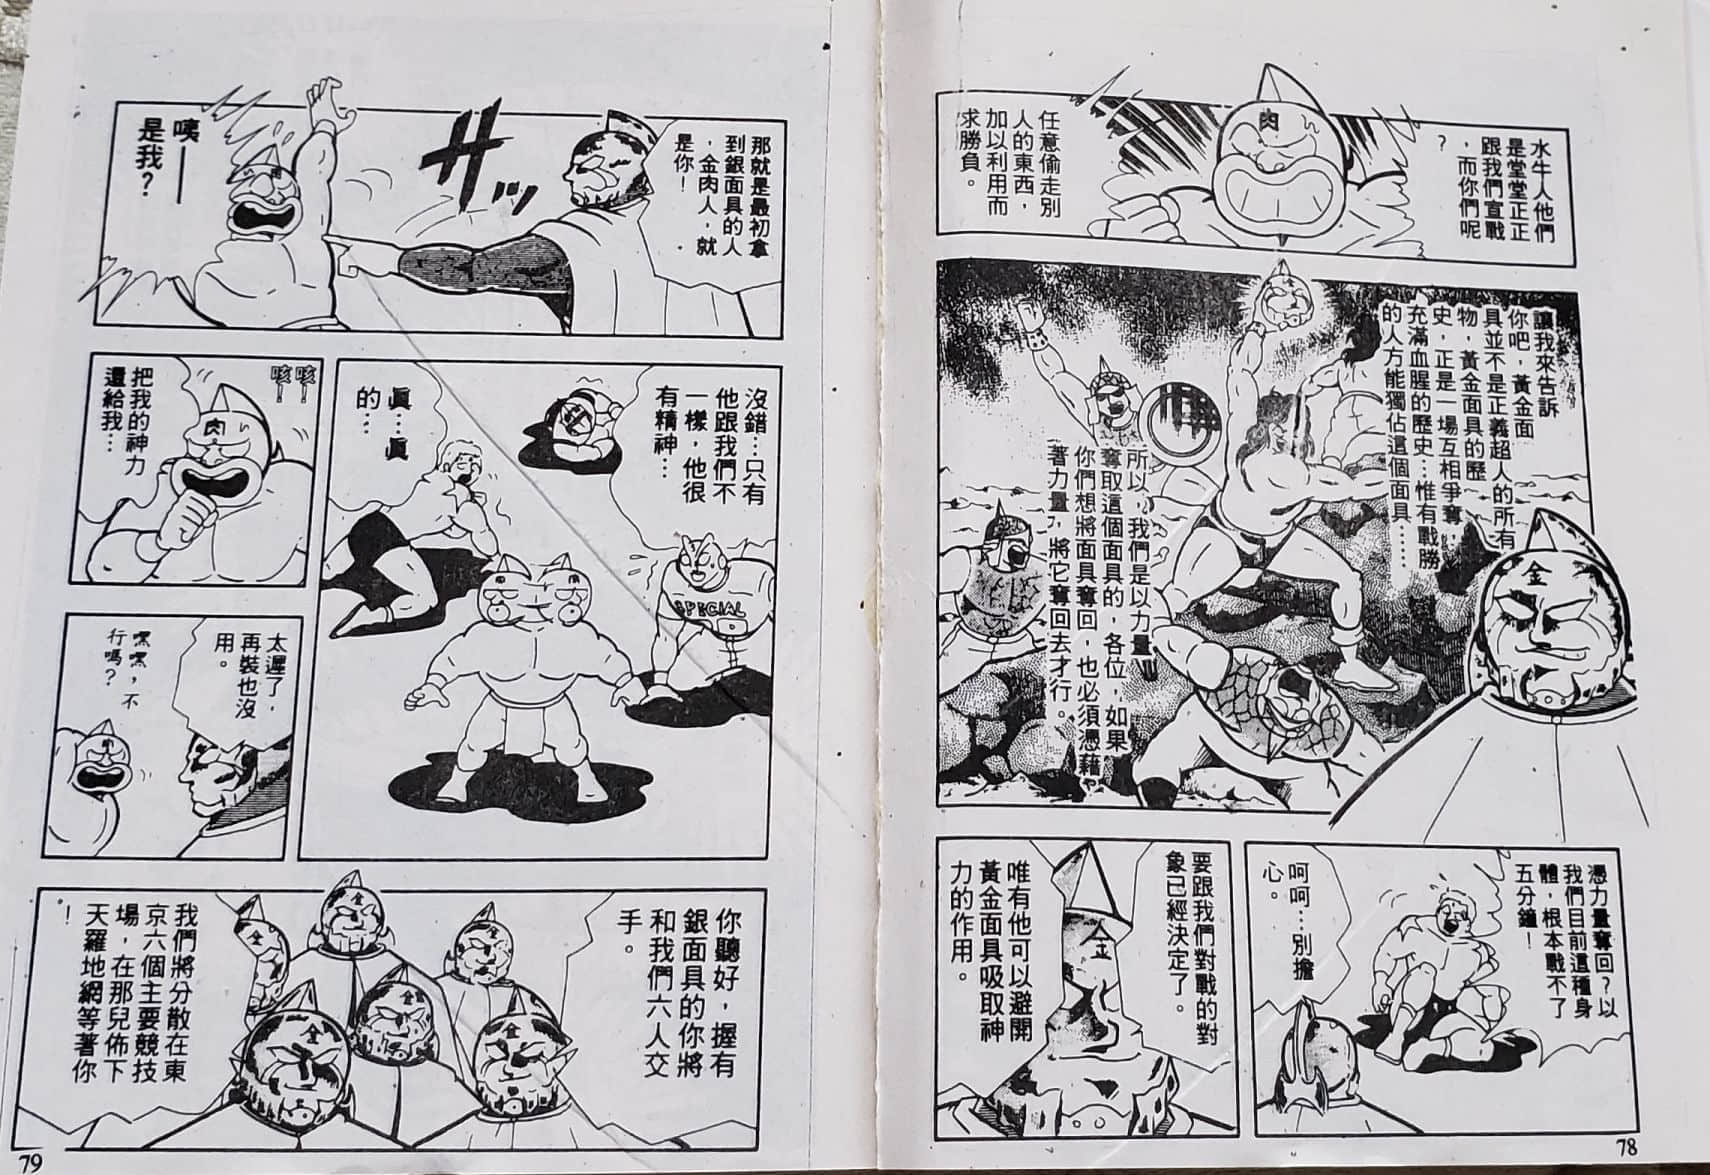 水牛人他們
是堂堂正正
跟我們宣戰
，而你們呢
？
任意偷走別
人的東西，
加以利用而
求勝負。
肉
讓我來告訴
你吧，黃金面
具並不是正義超人的所有
物，黃金面具的歷
史，正是一場互相爭奪，
充滿血腥的歷史…惟有戰勝
的人方能獨佔這個面具……
所以，我們是以力量
奪取這個面具的，各位，如果
你們想將面具奪回，也必須憑藉
著力量，將它奪回去才行。
金
憑力量奪回？以
我們目前這種身
體，根本戰不了
五分鐘！
呵呵…別擔
心。
要跟我們對戰的對
象已經決定了。
唯有他可以避開
黃金面具吸取神
力的作用。
金
78
那就是最初拿
到銀面具的人
，金肉人，就
是你！
ガッ
咦——
是我？
肉
沒錯…只有
他跟我們不
一樣，他很
有精神…
眞…眞
的…
SPECIAL
肉
肉
咳！咳！
把我的神力
還給我…
肉
太遲了，
再裝也沒
用。
嘿嘿，不
行嗎？
你聽好，握有
銀面具的你將
和我們六人交
手。
我們將分散在東
京六個主要競技
場，在那兒佈下
天羅地網等著你
！
金
金
金
金
金
金
79